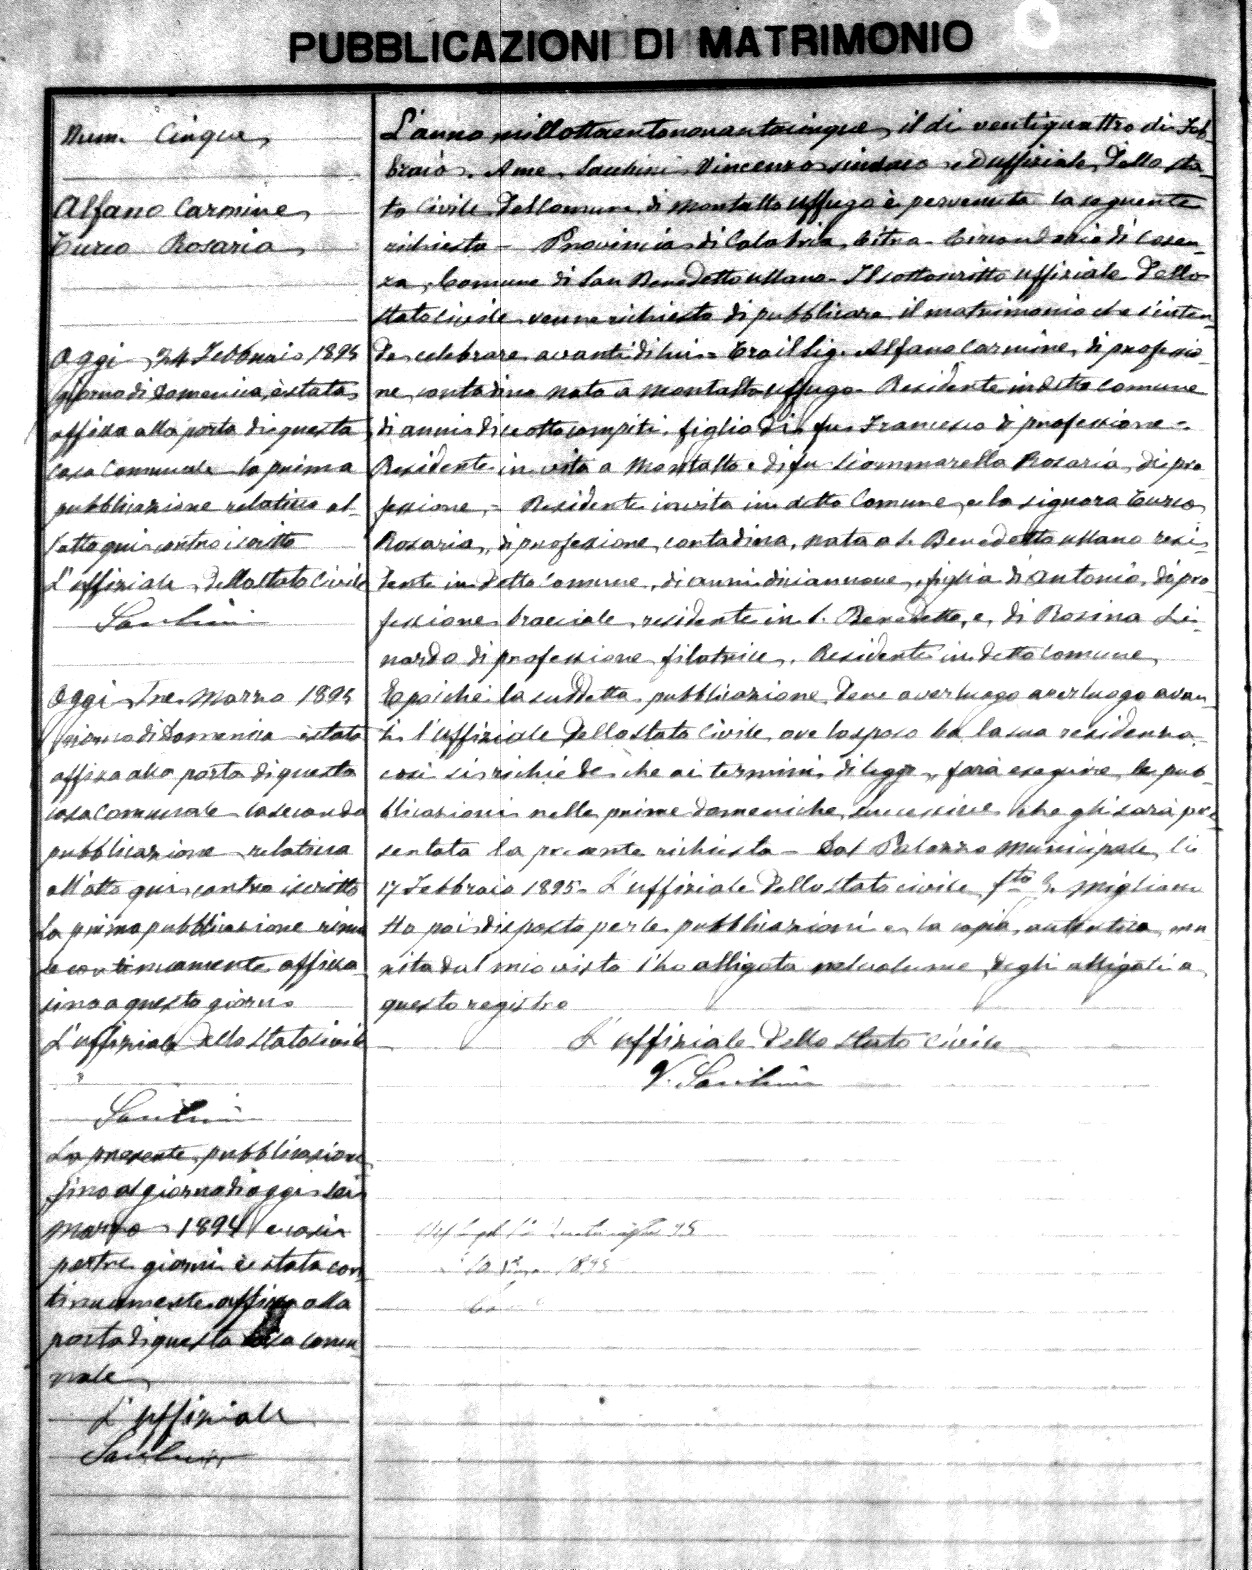 PUBBLICAZIONI DI MATRIMONIO
Num. Cinque
Alfano Carmine
Turco Rosaria
Oggi 24 Febbraio 1895
giorno di Domenica, è stata
affissa alla porta di questa
Casa Comunale la prima
pubblicazione relativa al-
l'atto qui contro iscritto
L'uffiziale dello stato Civile
Oggi tre Marzo 1895
giorno di Domenica è stata
affissa alla porta di questa
casa comunale la seconda
pubblicazione relativa
all'atto qui contro iscritto
La prima pubblicazione rima
se continuamente affissa
sino a questo giorno
L'uffiziale dello stato civile
La presente pubblicazione
fino al giorno di oggi sei
Marzo 1894 e così
per tre giorni è stata con
tinuamente affissa alla
porta di questa casa comu-
nale
L'uffiziale
L'anno millottocentonovantacinque, il di ventiquattro di Feb-
braio. A me Vincenzo sindaco ed uffiziale dello sta-
to Civile del Comune di Montalto Uffugo è pervenuta la seguente
richiesta - Provincia di Calabria Citra. Circondario di Cosen-
za, Comune di San Benedetto Ullano. Il sottoscritto uffiziale dello
stato civile venne richiesto di pubblicare il matrimonio che s'inten-
de celebrare avanti di lui = Tra il Sig. Alfano Carmine, di professio-
ne contadino nato a Montalto Uffugo Residente in detto Comune
di anni diciotto compiti, figlio di fu Francesco di professione =
Residente in vita a Montalto e di fu Sciammarella Rosaria, di pro
fessione = Residente in vita in detto Comune, e la signora Turco
Rosaria, di professione contadina, nata a S. Benedetto Ullano resi-
dente in detto Comune, di anni diciannove, figlia di Antonio, di pro
fessione bracciale, residente in S. Benedetto, e di Rosina Li-
nardo di professione filatrice. Residente in detto Comune
E poichè la suddetta pubblicazione deve aver luogo aver luogo avan
ti l'uffiziale dello stato Civile, ove lo sposo ha la sua residenza,
così si richiede che ai termini di legge, farà eseguire le pub-
blicazioni nelle prime domeniche successive che gli sarà pre
sentata la presente richiesta - Dal Palazzo Municipale, li
17 Febbraio 1895 - L'uffiziale dello stato civile, fto
Ho poi disposto per le pubblicazioni e la copia autentica, mu
nita dal mio visto l'ho alligata nel volume degli alligati a
questo registro
L'uffiziale dello stato civile